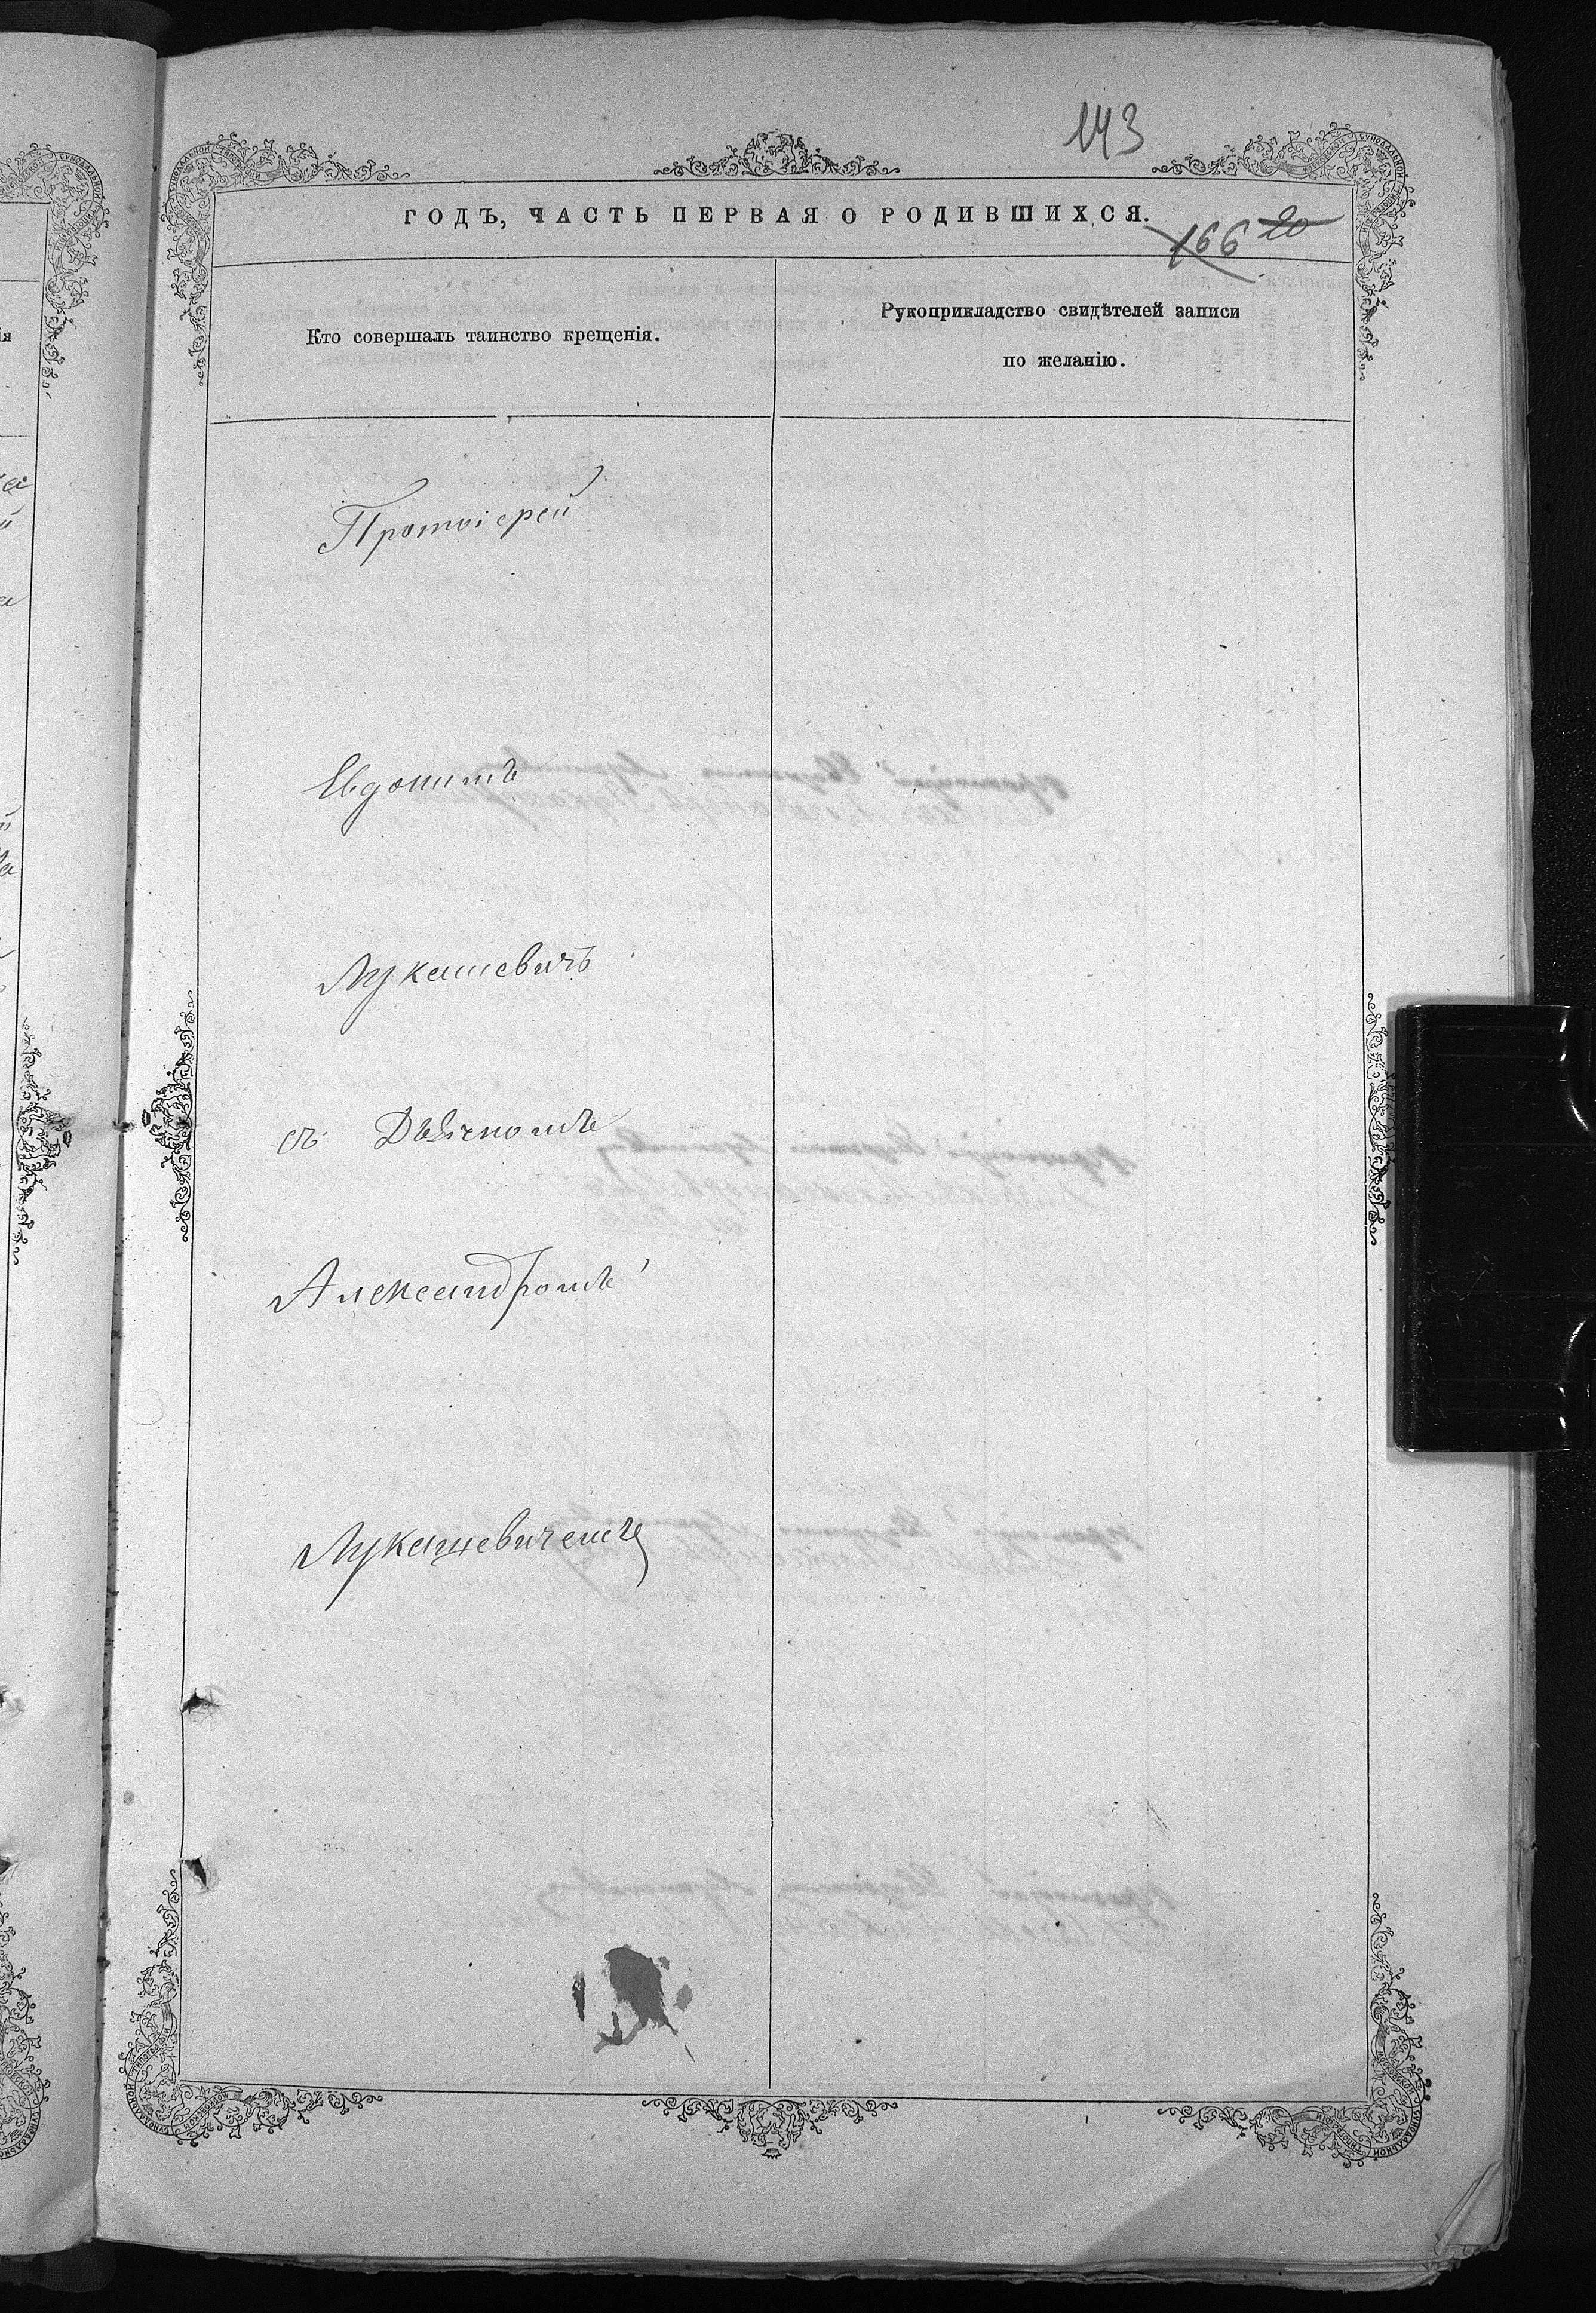 143
ГОДЪ, ЧАСТЬ ПЕРВАЯ О РОДИВШИХСЯ.
166 20
Кто совершалъ таинство крещенія.
Рукоприкладство свидѣтелей записи
по желанію.
Протоіерей
Евдокимъ
Лукашевичъ
съ Дьякомъ
Александромъ
Лукашевичемъ